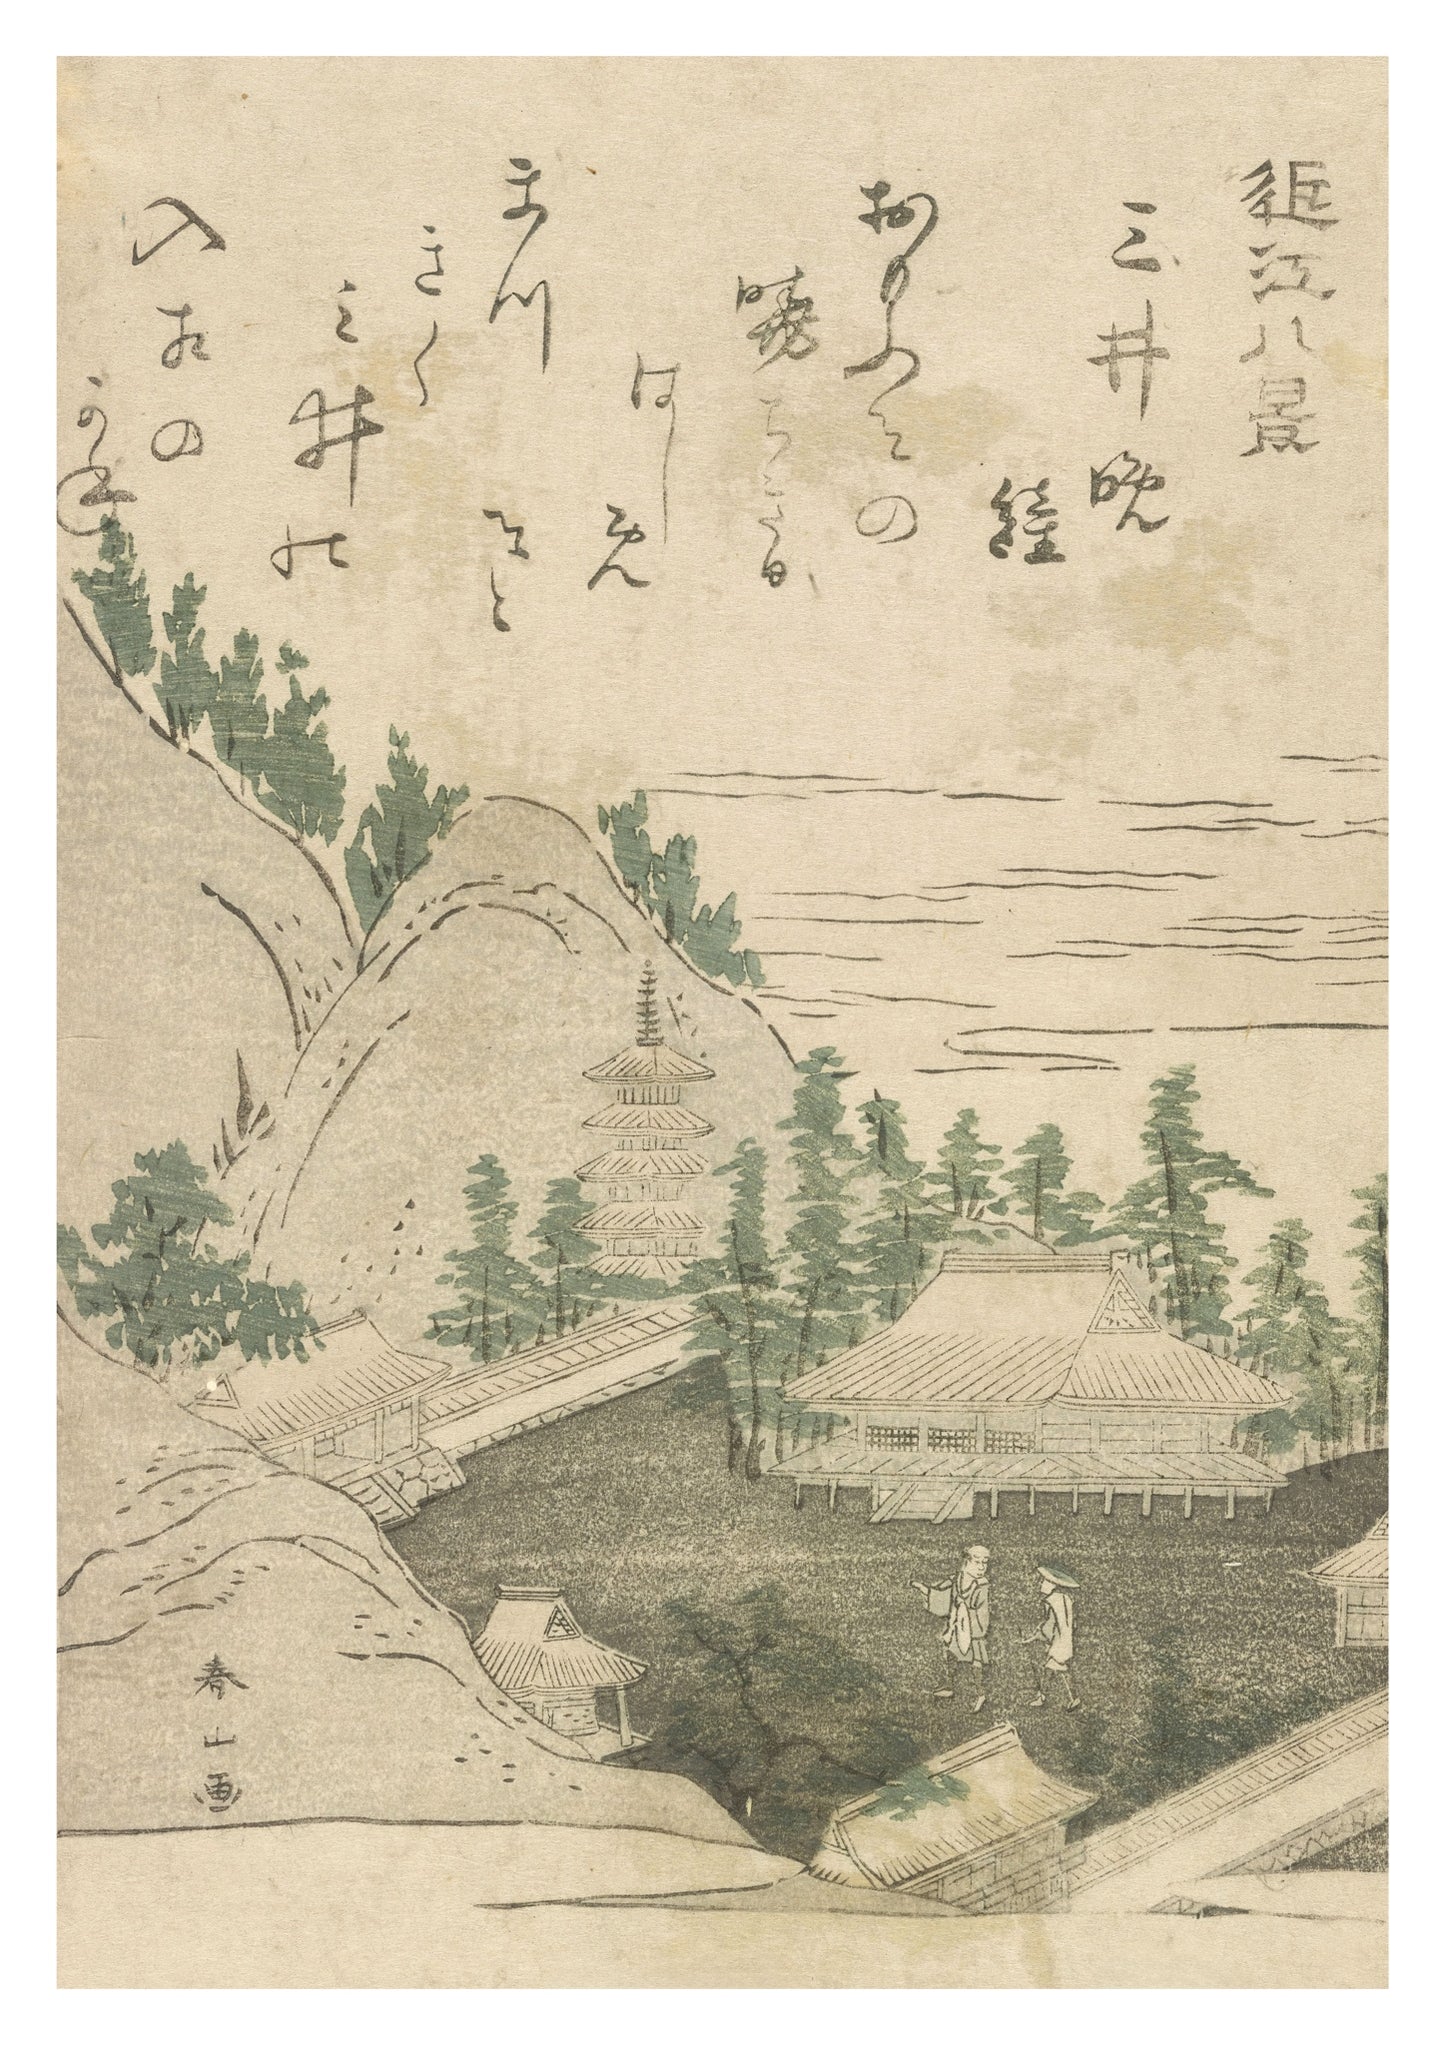 近江八景
三井晩
鐘
おもふその
暁ちきる
はし
め
そと
まつ
きく
三井の
入相の
かね
春山画